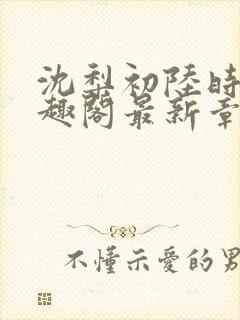 沈梨初陸時
趣閣最新章
不懂示愛的男